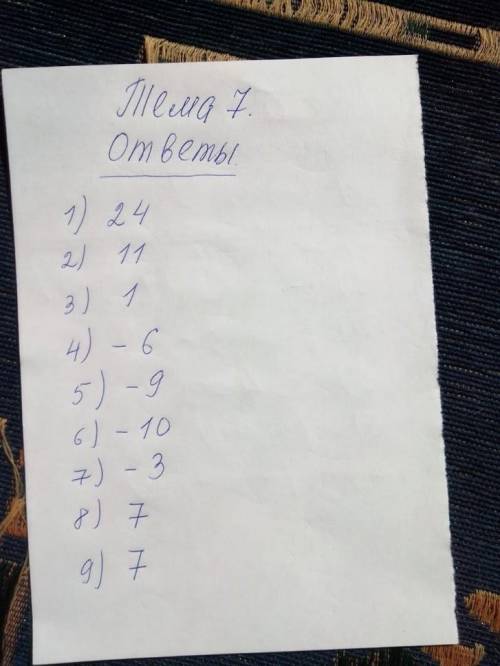 Тема 7.
Ответы
1) 24
2) 11
3) 1
4) - 6
5) - 9
6) - 10
7) - 3
8) 7
9) 7